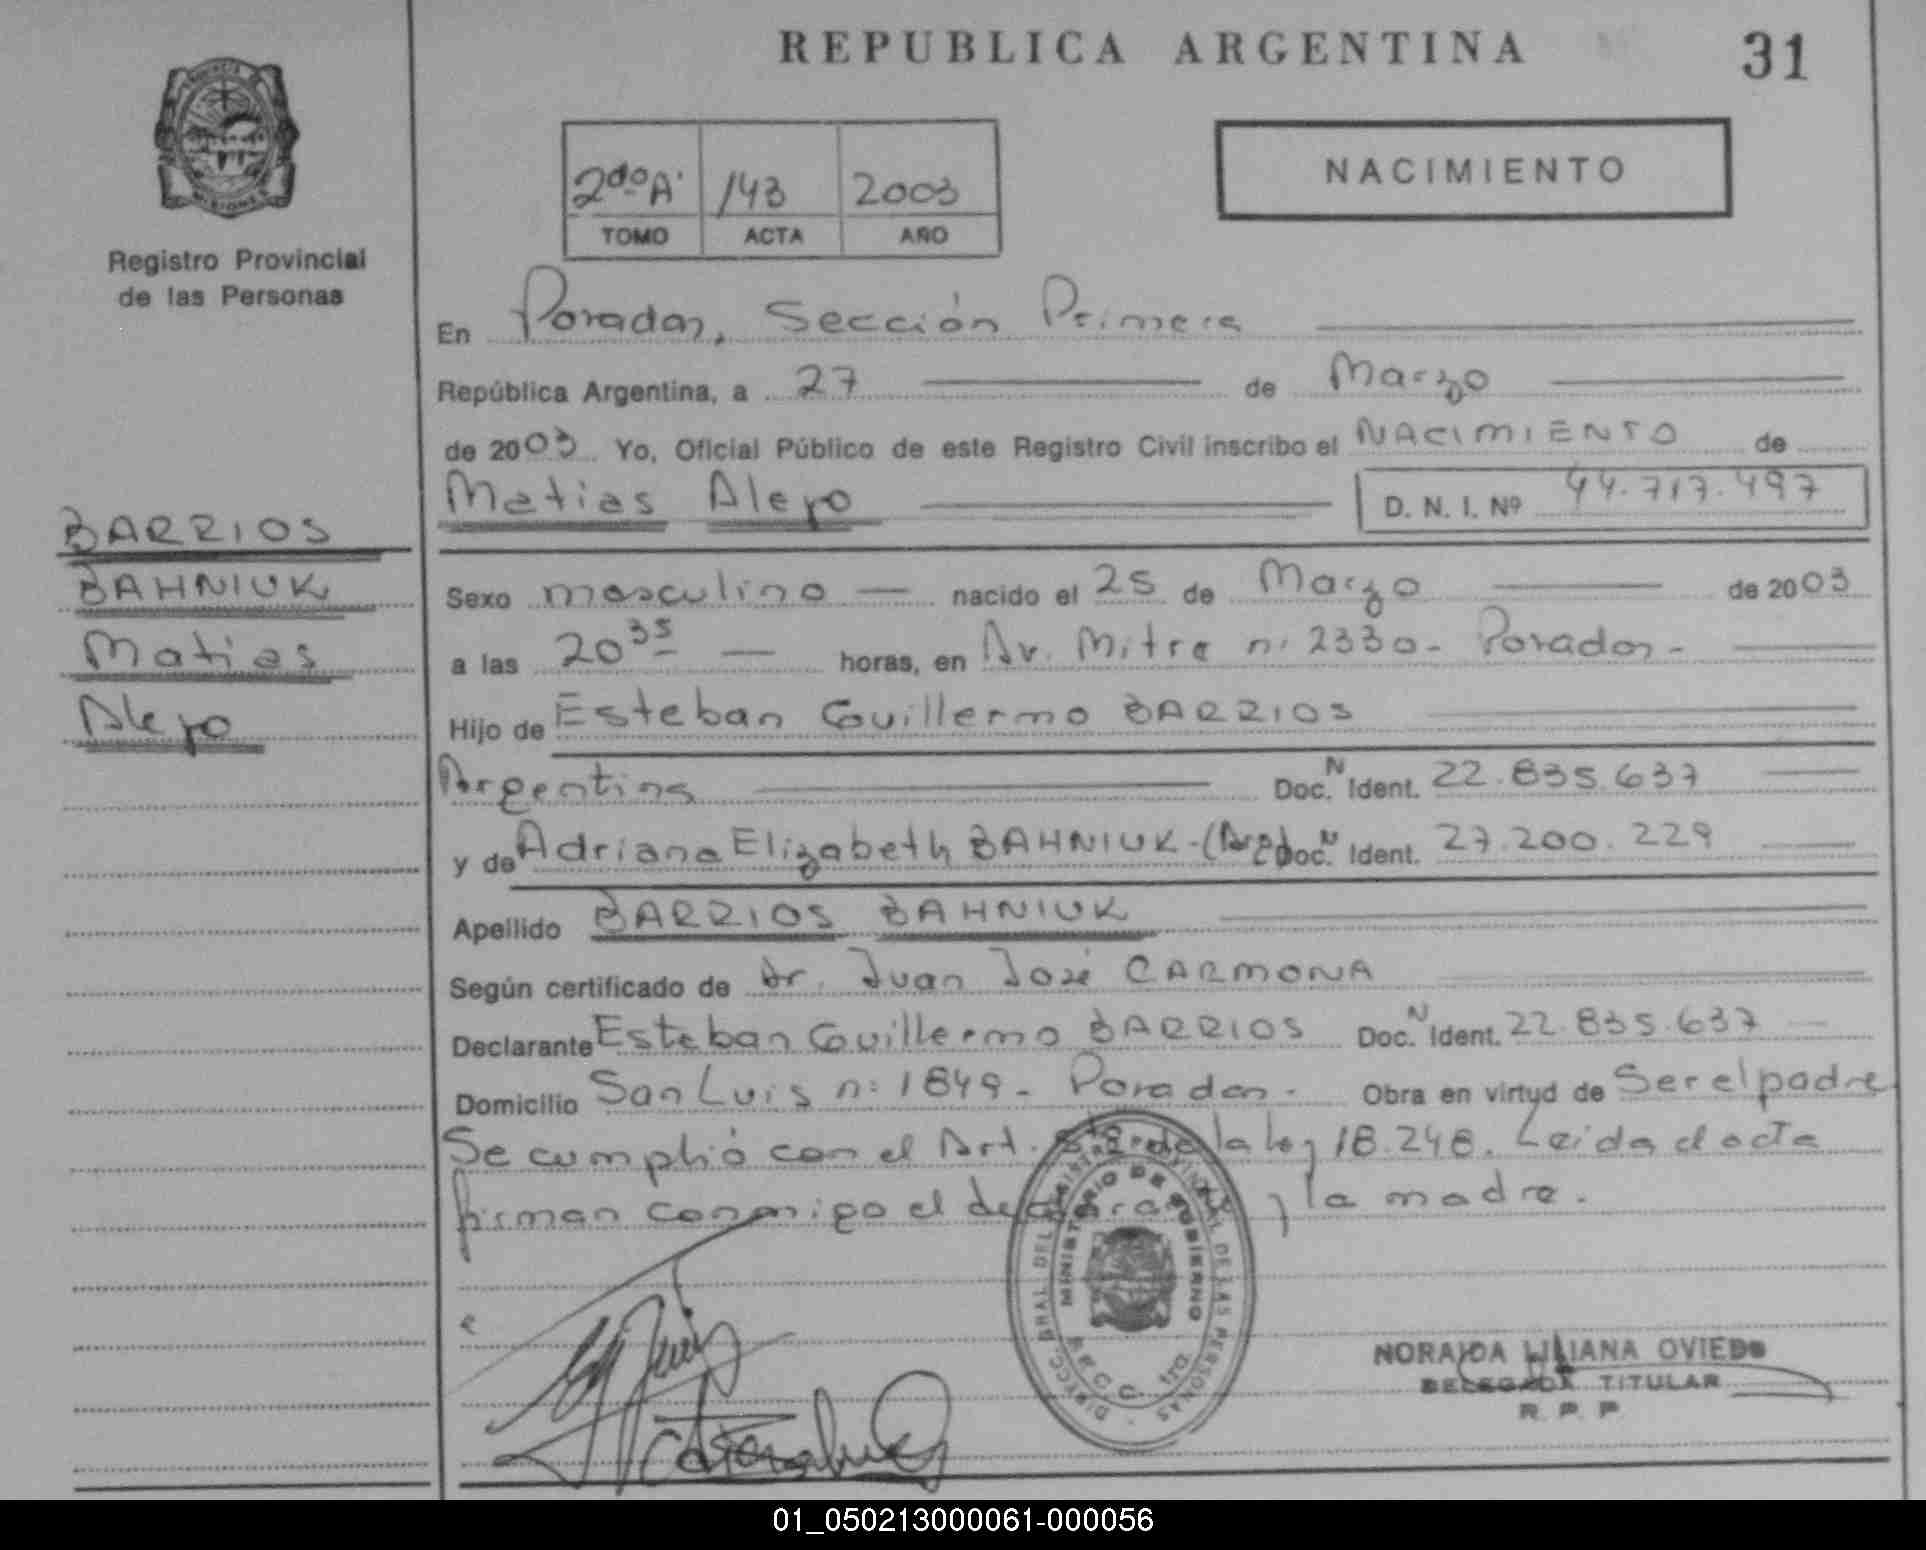 REPUBLICA ARGENTINA
31
2do A. 143 2003
TOMO ACTA AÑO
NACIMIENTO
Registro Provincial
de las Personas
BARRIOS
BAHNIUK
Matias
Alejo
En Posadas, Sección Primera
República Argentina, a 27 de Marzo
de 2003 Yo, Oficial Público de este Registro Civil inscribo el NACIMIENTO de
Matias Alejo D. N. I. Nº 44.717.497
Sexo masculino nacido el 25 de Marzo de 2003
a las 20 35 horas, en Av. Mitre n: 2330 - Posadas -
Hijo de Esteban Guillermo BARRIOS
Argentina Doc. N Ident. 22.835.637
y de Adriana Elizabeth BAHNIUK - (Arg) Doc. N Ident. 27.200.229
Apellido BARRIOS BAHNIUK
Según certificado de Dr. Juan José CARMONA
Declarante Esteban Guillermo BARRIOS Doc. N Ident. 22.835.637
Domicilio San Luis n: 1849 - Posadas - Obra en virtud de Ser el padre
Se cumplió con el Art. de la ley 18.248. Leida el acta
firman conmigo el declarante y la madre.
MINISTERIO DE GOBIERNO
NORAIDA LILIANA OVIEDO
DELEGADA TITULAR
R. P. P
01_050213000061-000056